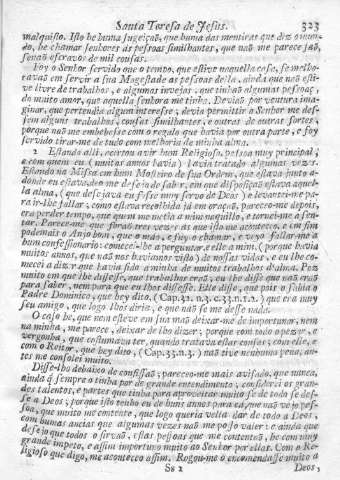 Santa Teresa de Jesus. 323
malquisto. Isto he huma sugeiçaõ, que huma das mentiras que diz o mun-
do, he chamar senhores ás pessoas similhantes, que naõ me parece jaõ,
senaõ escravos de mil cousas.
Foy o Senhor servido que o tempo, que estive naquella casa, se melho-
ravaõ em servir a sua Magestade as pessoas della, ainda que naõ esti-
ve livre de trabalhos, e algumas invejas, que tinhaõ algumas pessoas,
do muito amor, que aquella senhora me tinha. Deviaõ por ventura ima-
ginar, que pertendia algum interesse; devia permittir o Senhor me des-
sem alguns trabalhos, cousas similhantes, e outras de outras sortes,
porque naõ me embebesse com o regalo que havia por outra parte, e foy
servido tirar-me de tudo com melhoria de minha alma.
2 Estando alli, acertou a vir hum Religioso, pessoa muy principal,
e com quem eu (muitos annos havia) havia tratado algumas vezes.
Estando na Missa em hum Mosteiro de sua Ordem, que estava junto a-
donde eu estava, deo-me desejo de saber, em que disposiçaõ estava aquel-
la alma, (que desejava eu fosse muy servo de Deos) e levantei-me pa-
ra ir-lhe fallar; como estava recolhida já em oraçaõ, pareceo-me depois,
era perder tempo, que quem me metia a mim naquillo, e tornei-me a sen-
tar. Parece-me que foraõ tres vezes as que isto me aconteceo, e em fim
pode mais o Anjo bom, que o máo, e fuy o chamar, e veyo fallar-me a
hum confessionario: comecei-lhe a perguntar, e elle a mim, (porque havia
muitos annos, que naõ nos haviamos visto) de nossas vidas, e eu lhe co-
mecei a dizer que havia sido a minha de muitos trabalhos d'alma. Poz
muito em que lhe dissesse, que trabalhos eraõ, eu lhe disse que naõ eraõ
para saber, nem para que eu lhos dissesse. Elle disse, que pois o sabia o
Padre Dominico, que hey dito, (Cap. 32. n. 3. c. 33. n. 1. 2.) que era muy
seu amigo, que logo lhos diria, e que naõ se me désse nada.
O caso he, que nem esteve em sua maõ deixar-me de importunar, nem
na minha, me parece, deixar de lho dizer; porque com todo o pezar, e
vergonha, que costumava ter, quando tratava estas cousas; com elle, e
com o Reitor, que hey dito, (Cap. 33. n. 3.) naõ tive nenhuma pena, an-
tes me consolei muito.
Disse-lho debaixo de confissaõ; pareceo-me mais avisado, que nunca,
ainda q̃ sempre o tinha por de grande entendimento; considerei os gran-
des talentos, e partes que tinha para aproveitar muito se de todo se dés-
se a Deos; porque isto tenho eu de huns annos para cá, que naõ vejo pes-
soa, que muito me contente, que logo queria vella dar de todo a Deos,
com humas ancias que algumas vezes naõ me posso valer: e ainda que
desejo que todos o sirvaõ, estas pessoas que me contentaõ, he com muy
grande impeto, e assim importuno muito ao Senhor por ellas. Com o Re-
ligioso que digo, me aconteceo assim. Rogou-me o encomendasse muito a
Ss 2 Deos,